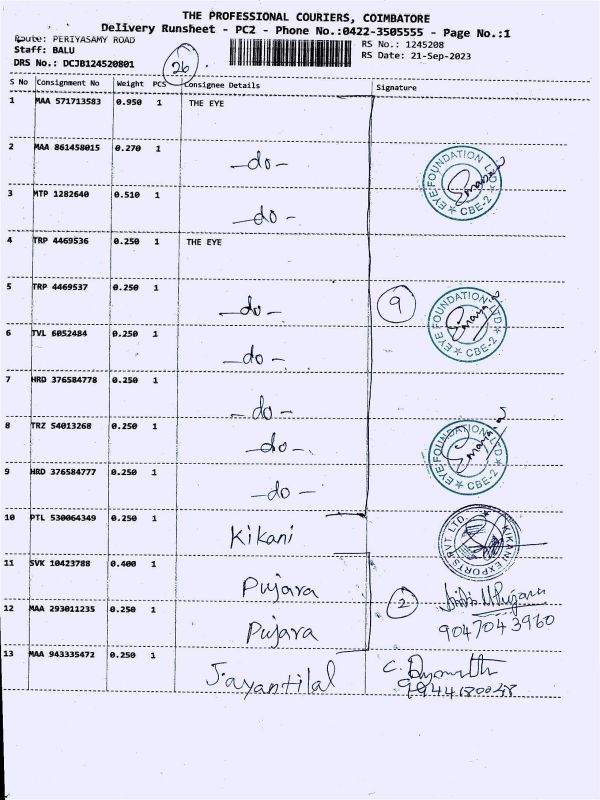 THE PROFESSIONAL COURIERS, COIMBATORE
Delivery Runsheet - PC2 - Phone No.:0422-3505555 - Page No.:1
Route: PERIYASAMY ROAD
RS No.: 1245208
Staff: BALU
RS Date: 21-Sep-2023
DRS No.: DCJB124520801
26
S No Consignment No Weight PCS Consignee Details Signature
1 MAA 571713583 0.950 1 THE EYE
2 MAA 861458015 0.270 1 -do-
EYE FOUNDATION LTD * CBE-2 *
3 MTP 1282640 0.510 1 -do-
4 TRP 4469536 0.250 1 THE EYE
5 TRP 4469537 0.250 1 -do- 9
EYE FOUNDATION LTD * CBE-2 *
6 TVL 6052484 0.250 1 -do-
7 HRD 376584778 0.250 1 -do-
8 TRZ 54013268 0.250 1 -do-
EYE FOUNDATION LTD * CBE-2 *
9 HRD 376584777 0.250 1 -do-
10 PTL 530064349 0.250 1 Kikani
KIKANI EXPORTS PVT LTD.
11 SVK 10423788 0.400 1 Pujara
12 MAA 293011235 0.250 1 Pujara 2
9047043960
13 MAA 943335472 0.250 1 Jayantilal